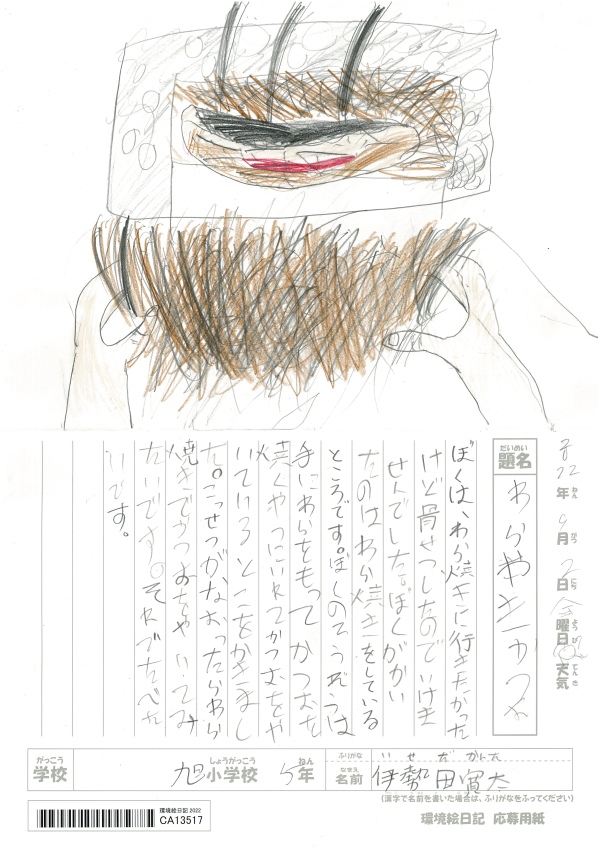 2022年ねん 9月がつ 2日にち 金曜日ようび 天気てんき
だいめい
題名
わらやきかつお
ぼくは、わら焼きに行きたかった
けど骨せつしたのでいけま
せんでした。ぼくがかい
たのはわら焼きをしている
ところです。ぼくのそうぞうは
手にわらをもってかつおを
焼くやつにいれてかつおをや
いているとこをかきまし
た。こっせつがなおったらわら
焼きでかつおをやいてみ
たいです。それでたべた
いです。
がっこう しょうがっこう ねん ふりがな いせだかんた
学校 旭小学校 5年 なまえ 名前 伊勢田寛太
(漢字で名前を書いた場合は、ふりがなをふってください)
環境絵日記 2022
CA13517
環境絵日記 応募用紙